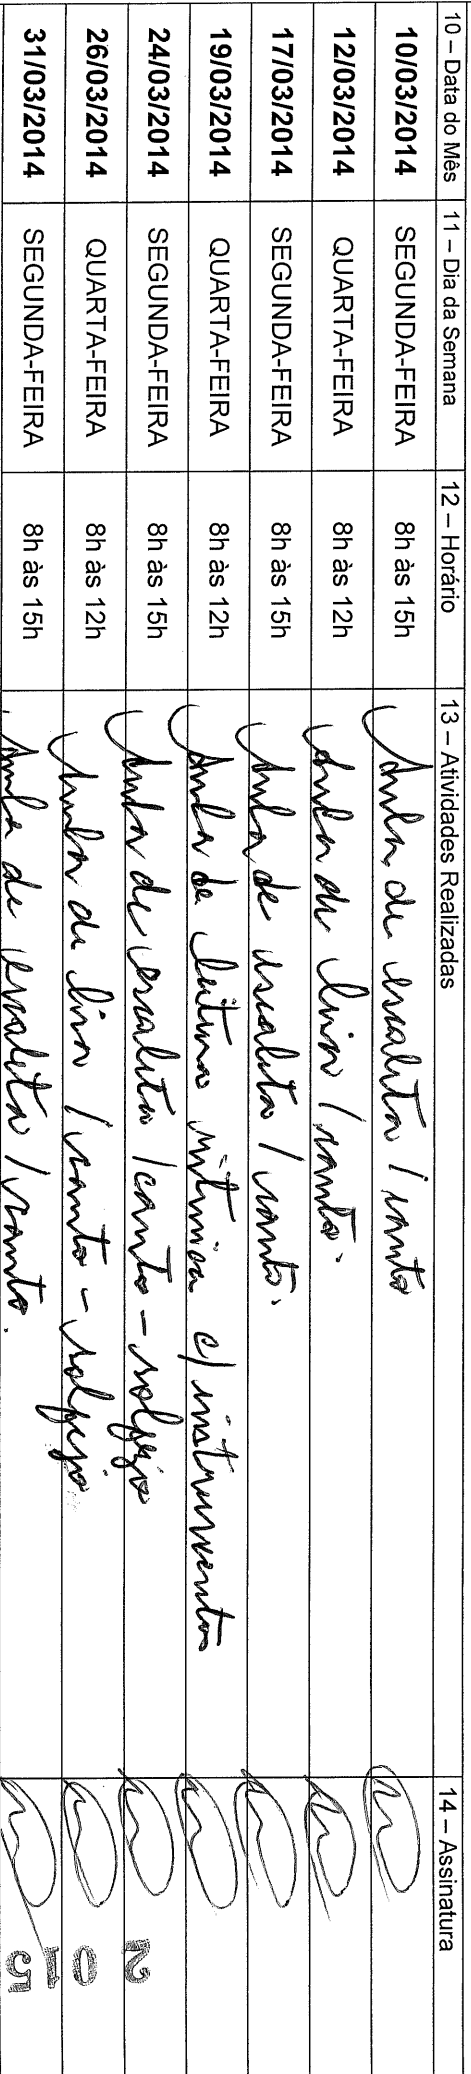 10 – Data do Mês 11 – Dia da Semana 12 – Horário 13 – Atividades Realizadas 14 – Assinatura
10/03/2014 SEGUNDA-FEIRA 8h às 15h Aula de escaleta / canto
12/03/2014 QUARTA-FEIRA 8h às 12h Aula de lira / canto.
17/03/2014 SEGUNDA-FEIRA 8h às 15h Aula de escaleta / canto.
19/03/2014 QUARTA-FEIRA 8h às 12h Aula de leitura rítmica c/ instrumentos
24/03/2014 SEGUNDA-FEIRA 8h às 15h Aula de escaleta / canto – solfejo
26/03/2014 QUARTA-FEIRA 8h às 12h Aula de lira / canto – solfejo
31/03/2014 SEGUNDA-FEIRA 8h às 15h Aula de escaleta / canto.
2 015